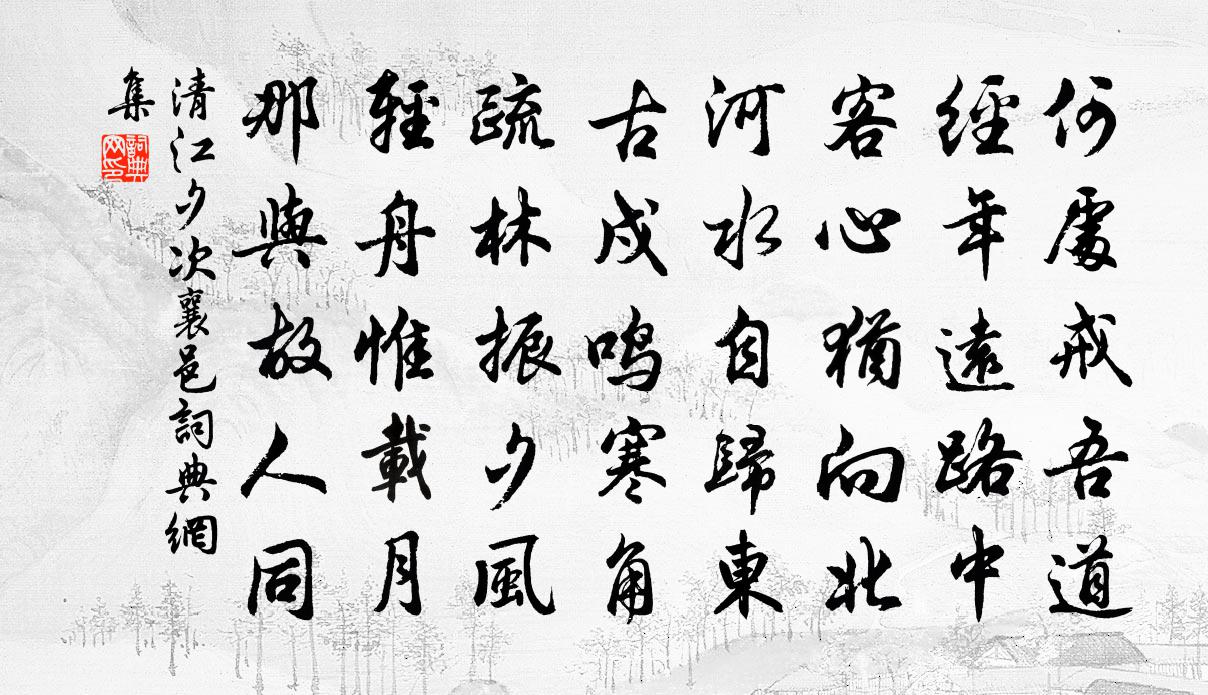 何處戒吾道
經年遠路中
客心猶向北
河水自歸東
古戍鳴寒角
疏林振夕風
輕舟惟載月
那與故人同
清江夕次襄邑詞典網
集
詞典網印